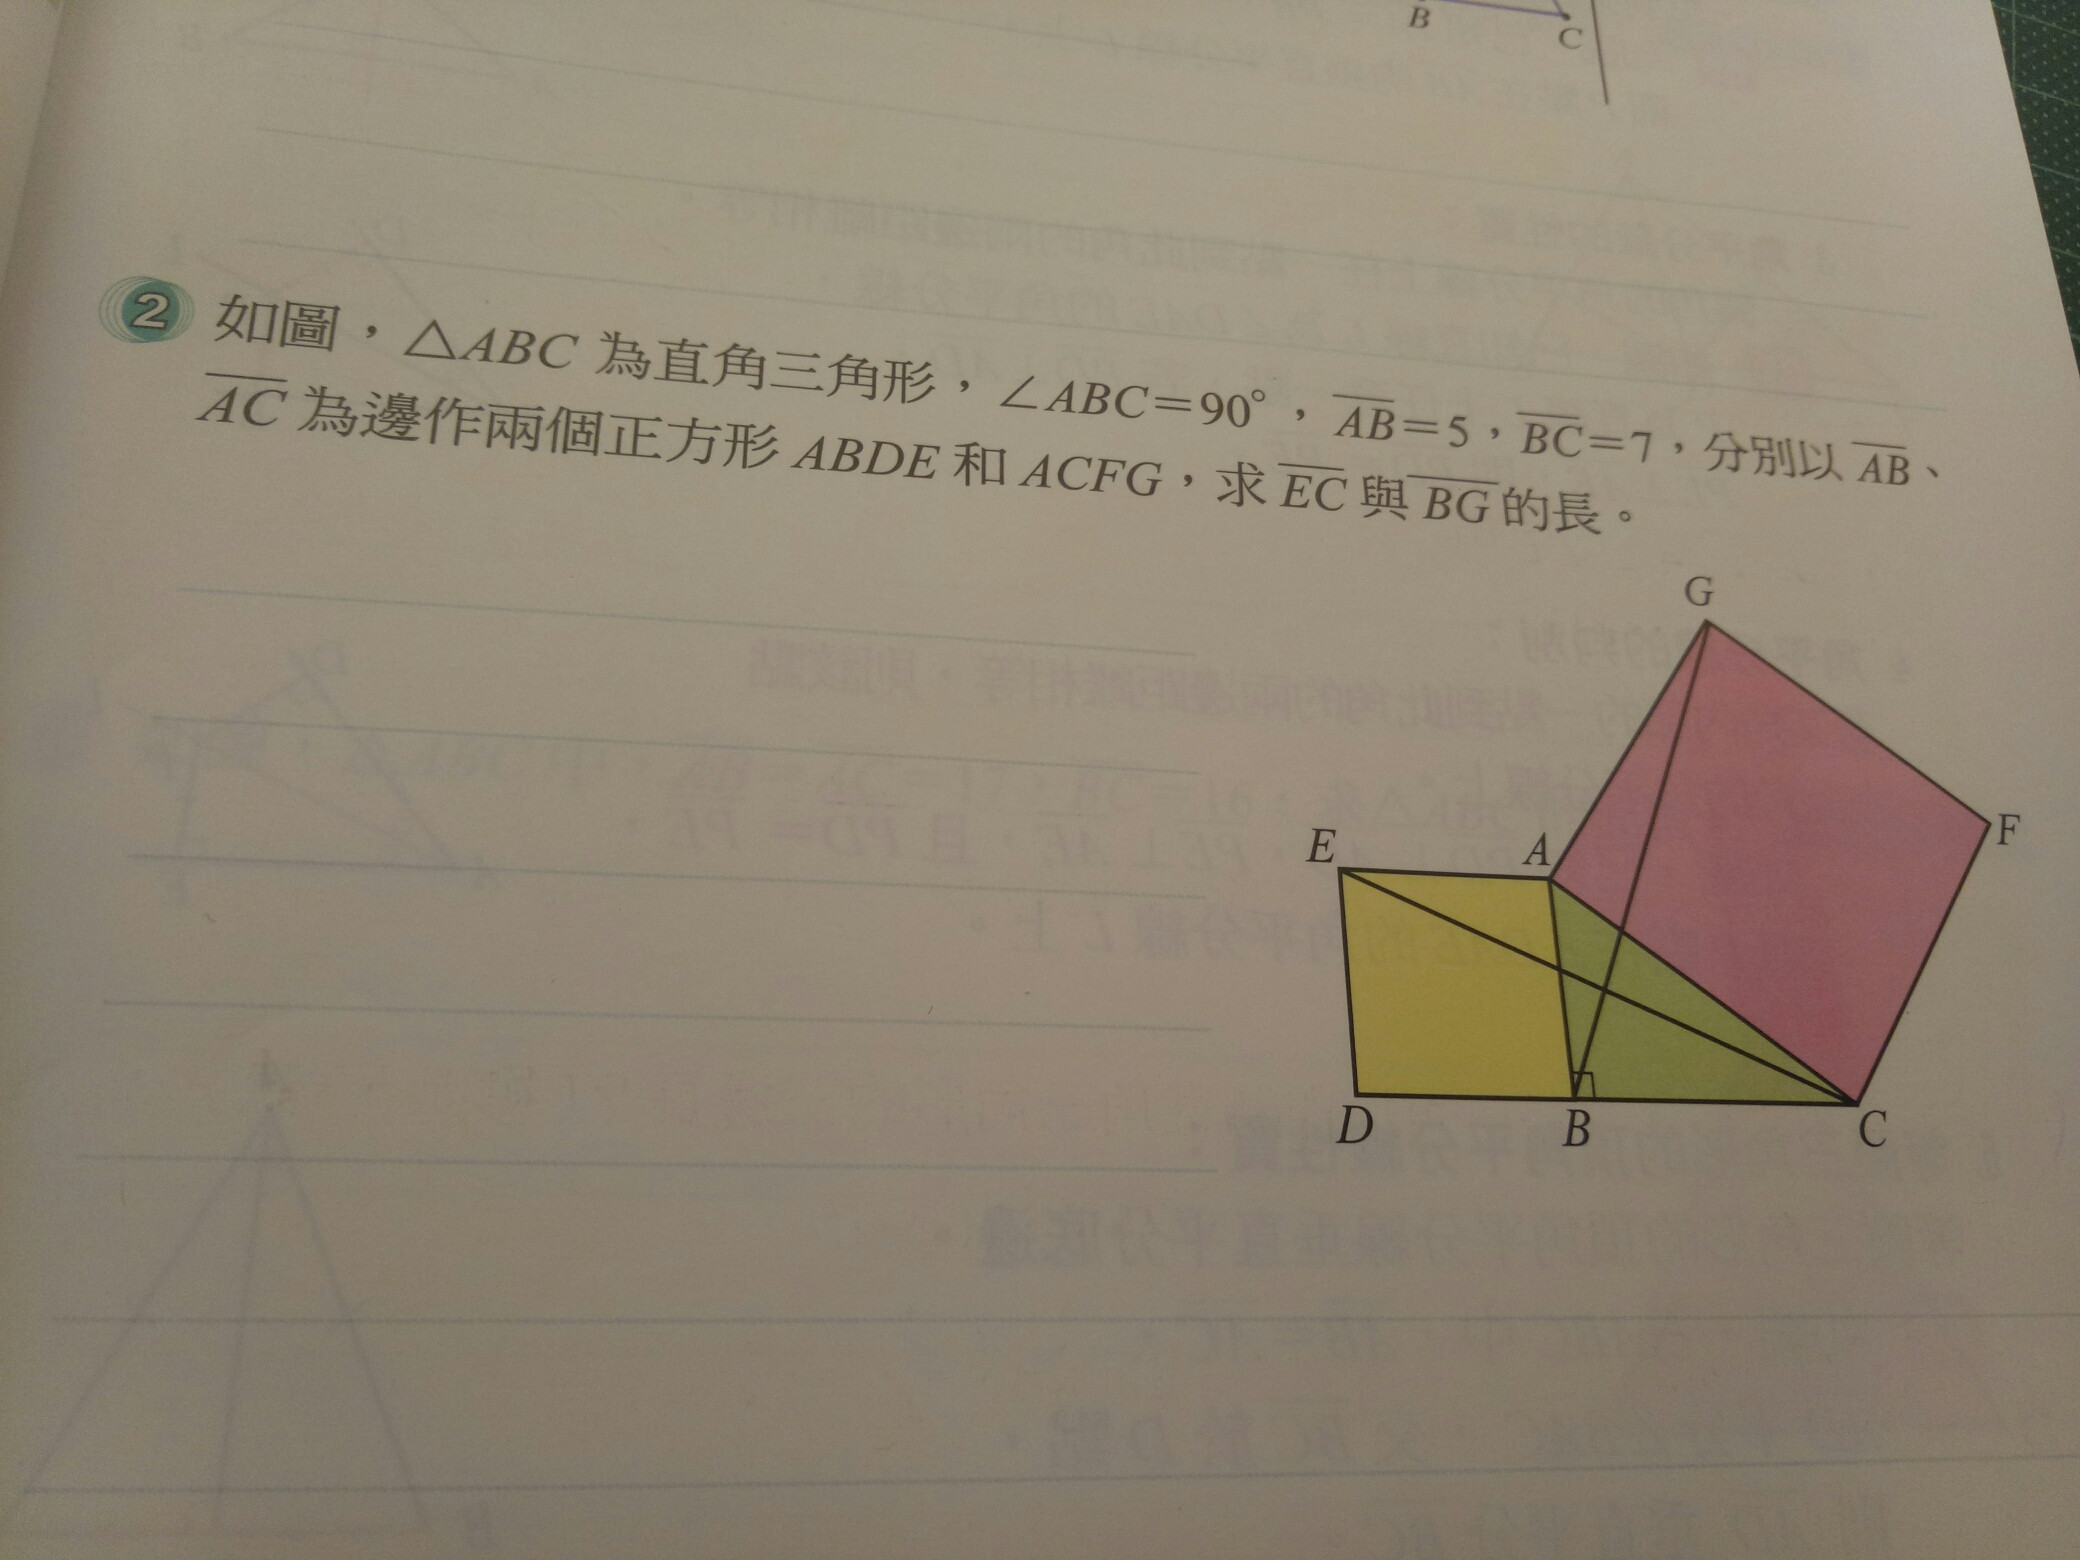 B
C
2 如圖，△ABC 為直角三角形，∠ABC=90°，AB=5，BC=7，分別以 AB、
AC 為邊作兩個正方形 ABDE 和 ACFG，求 EC 與 BG 的長。
G
F
E
A
D
B
C